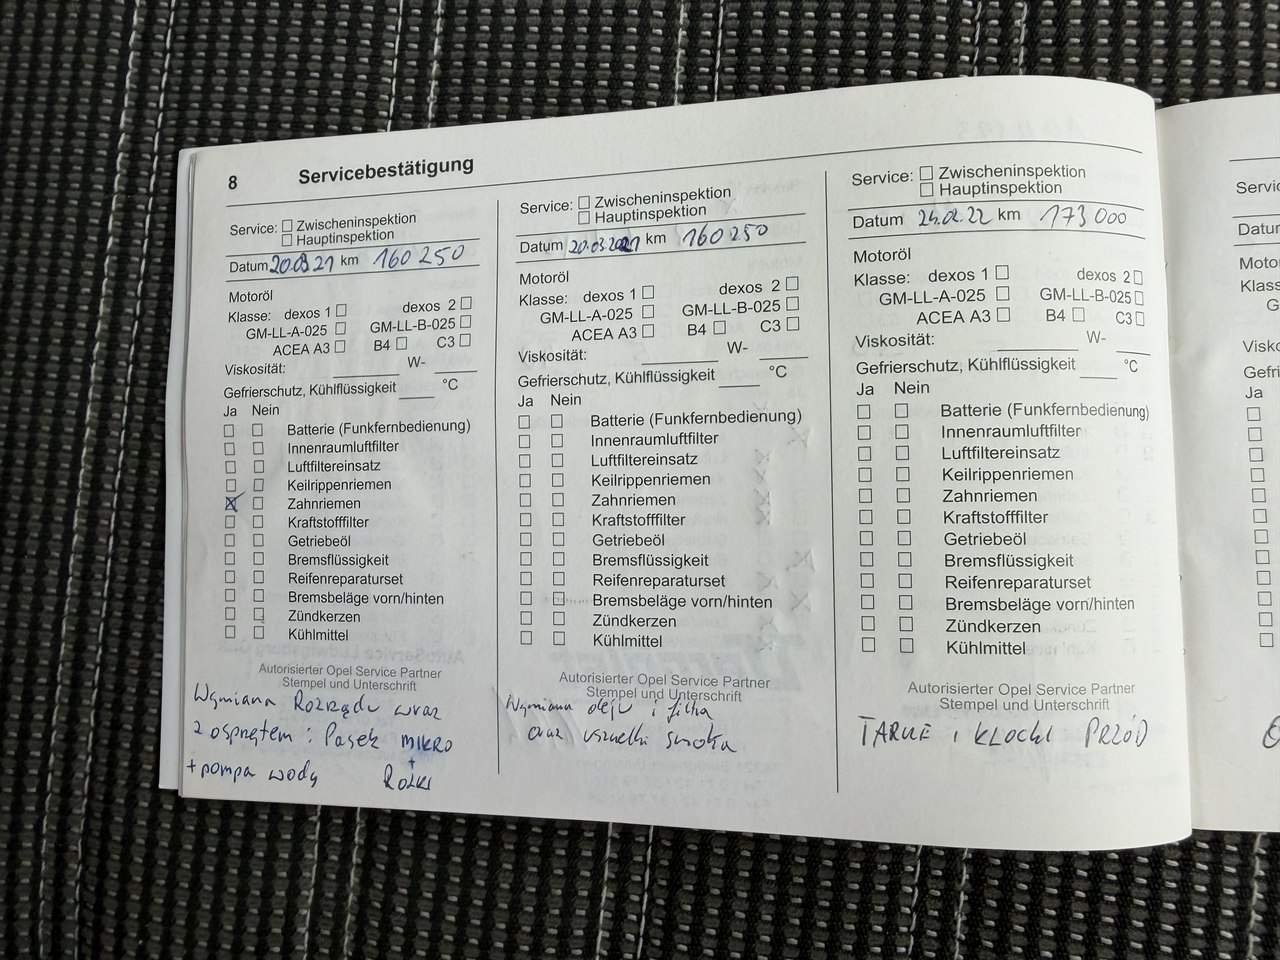 8 Servicebestätigung
Service: Zwischeninspektion
Hauptinspektion
Datum 20.03 21 km 160 250
Motoröl
Klasse: dexos 1 dexos 2
GM-LL-A-025 GM-LL-B-025
ACEA A3 B4 C3
Viskosität: W-
Gefrierschutz, Kühlflüssigkeit °C
Ja Nein
Batterie (Funkfernbedienung)
Innenraumluftfilter
Luftfiltereinsatz
Keilrippenriemen
Zahnriemen
Kraftstofffilter
Getriebeöl
Bremsflüssigkeit
Reifenreparaturset
Bremsbeläge vorn/hinten
Zündkerzen
Kühlmittel
Autorisierter Opel Service Partner
Stempel und Unterschrift
Wymiana Rozrządu wraz
z osprzętem: Pasek MIKRO
+ pompa wody + Rolki
Service: Zwischeninspektion
Hauptinspektion
Datum 20.03.2021 km 160 250
Motoröl
Klasse: dexos 1 dexos 2
GM-LL-A-025 GM-LL-B-025
ACEA A3 B4 C3
Viskosität: W-
Gefrierschutz, Kühlflüssigkeit °C
Ja Nein
Batterie (Funkfernbedienung)
Innenraumluftfilter
Luftfiltereinsatz
Keilrippenriemen
Zahnriemen
Kraftstofffilter
Getriebeöl
Bremsflüssigkeit
Reifenreparaturset
Bremsbeläge vorn/hinten
Zündkerzen
Kühlmittel
Autorisierter Opel Service Partner
Stempel und Unterschrift
Wymiana oleju i filtra
oraz uszczelki smoka
Service: Zwischeninspektion
Hauptinspektion
Datum 24.02.22 km 173 000
Motoröl
Klasse: dexos 1 dexos 2
GM-LL-A-025 GM-LL-B-025
ACEA A3 B4 C3
Viskosität: W-
Gefrierschutz, Kühlflüssigkeit °C
Ja Nein
Batterie (Funkfernbedienung)
Innenraumluftfilter
Luftfiltereinsatz
Keilrippenriemen
Zahnriemen
Kraftstofffilter
Getriebeöl
Bremsflüssigkeit
Reifenreparaturset
Bremsbeläge vorn/hinten
Zündkerzen
Kühlmittel
Autorisierter Opel Service Partner
Stempel und Unterschrift
TARCZE i KLOCKI PRZÓD
Ja